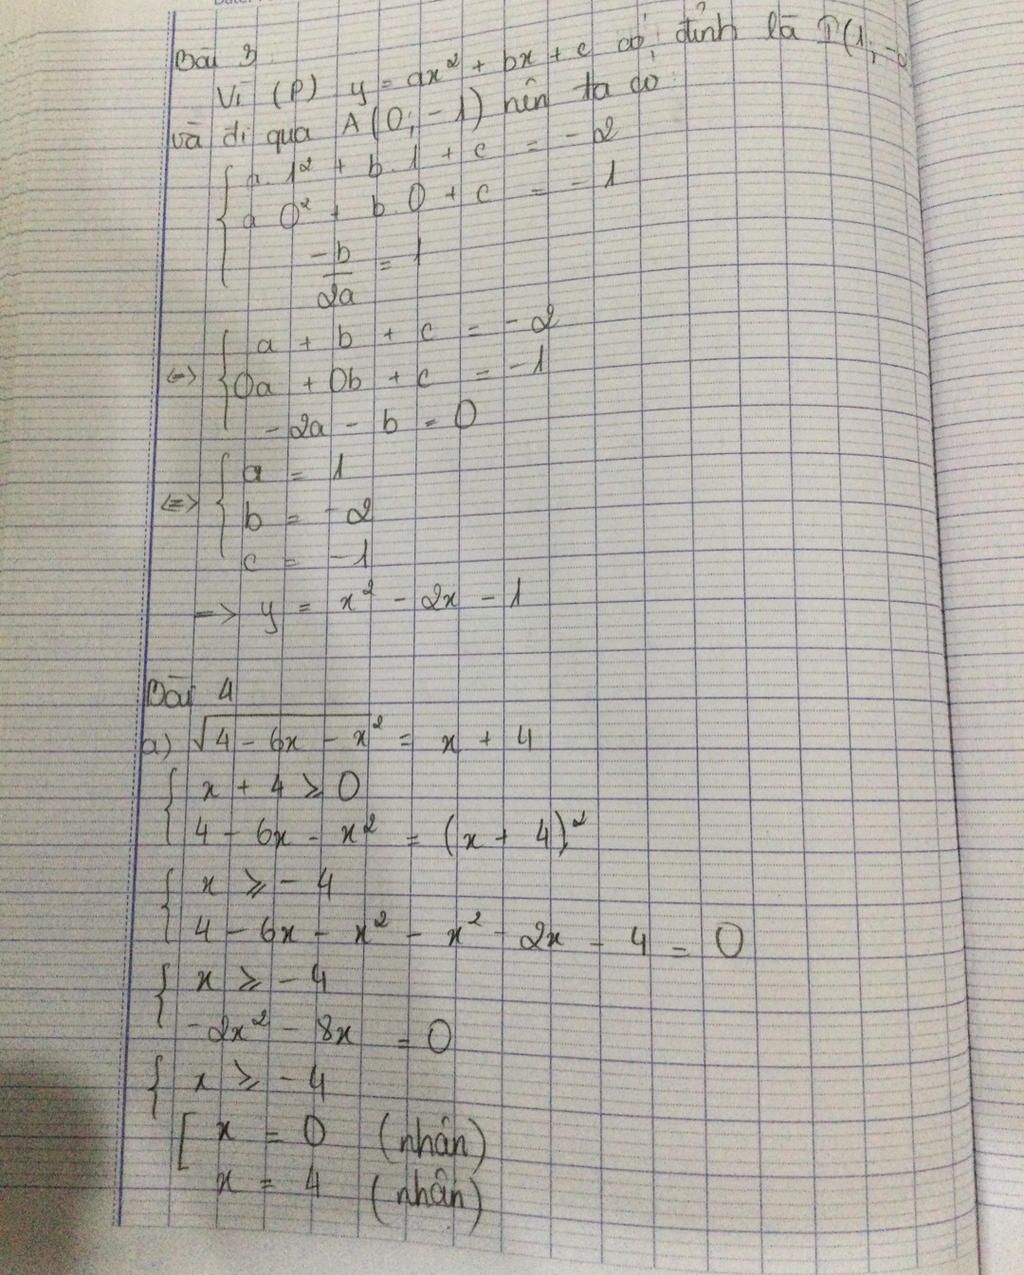 Bài 3
Vì (P) y = ax² + bx + c có đỉnh là I(1; -
và đi qua A(0; -1) nên ta có
{ a. 1² + b. 1 + c = -2
a 0² + b. 0 + c = -1
-b/2a = 1
<=> { a + b + c = -2
0a + 0b + c = -1
-2a - b = 0
<=> { a = 1
b = -2
c = -1
=> y = x² - 2x - 1
Bài 4
a) √(4 - 6x - x²) = x + 4
{ x + 4 ⩾ 0
4 - 6x - x² = (x + 4)²
{ x ⩾ -4
4 - 6x - x² - x² - 2x - 4 = 0
{ x ⩾ -4
-2x² - 8x = 0
{ x ⩾ -4
[ x = 0 (nhân)
x = 4 (nhân)